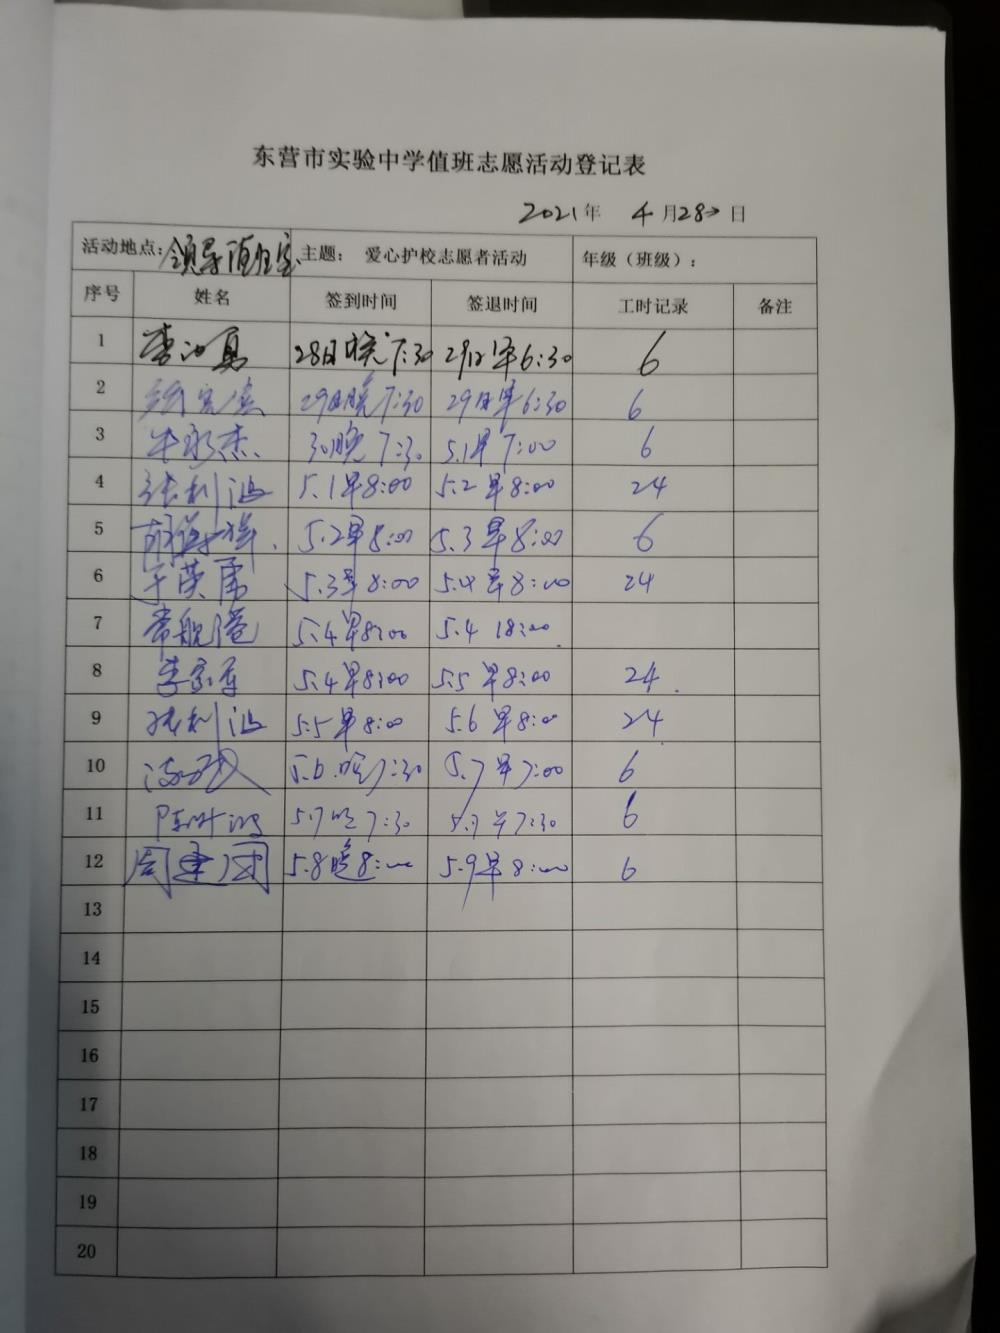 东营市实验中学值班志愿活动登记表
2021年 4月28 日
活动地点: 领导值班室 主题: 爱心护校志愿者活动 年级（班级）:
序号 姓名 签到时间 签退时间 工时记录 备注
1 28日晚7:30 29日早6:30 6
2 29日晚7:30 29日早6:30 6
3 牛永杰 30晚7:30 5.1早7:00 6
4 张利 5.1早8:00 5.2早8:00 24
5 5.2早8:00 5.3早8:00 6
6 于英 5.3早8:00 5.4早8:00 24
7 常 5.4早8:00 5.4 18:00
8 李 5.4早8:00 5.5早8:00 24
9 张利 5.5早8:00 5.6早8:00 24
10 5.6晚7:30 5.7早7:00 6
11 5.7晚7:30 5.9早7:30 6
12 周建团 5.8晚8:00 5.9早8:00 6
13
14
15
16
17
18
19
20